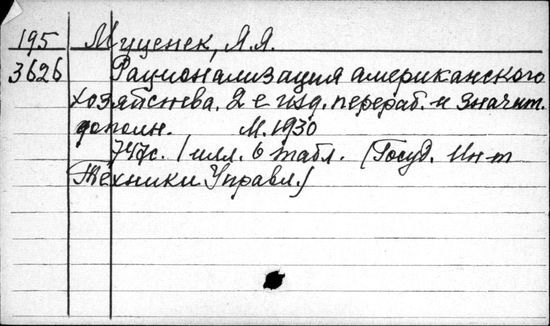 195 Муценек, Я.Я.
3626 Рационализация американского
хозяйства. 2е изд. перераб. и значит.
дополн. М. 1930
747с. 1 илл. 6 табл. (Госуд. Ин-т
Техники Управл.)